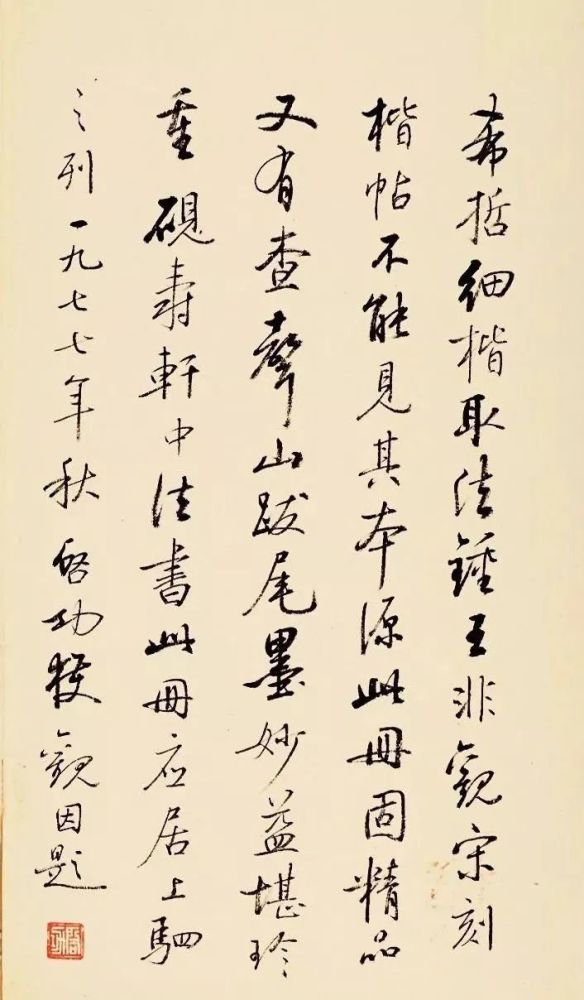 希哲细楷取法鍾王非觀宋刻
楷帖不能見其本源此冊固精品
又有查聲山跋尾墨妙益堪珍
重硯壽軒中法書此冊应居上駟
之列一九七七年秋啓功獲觀因題
啓功